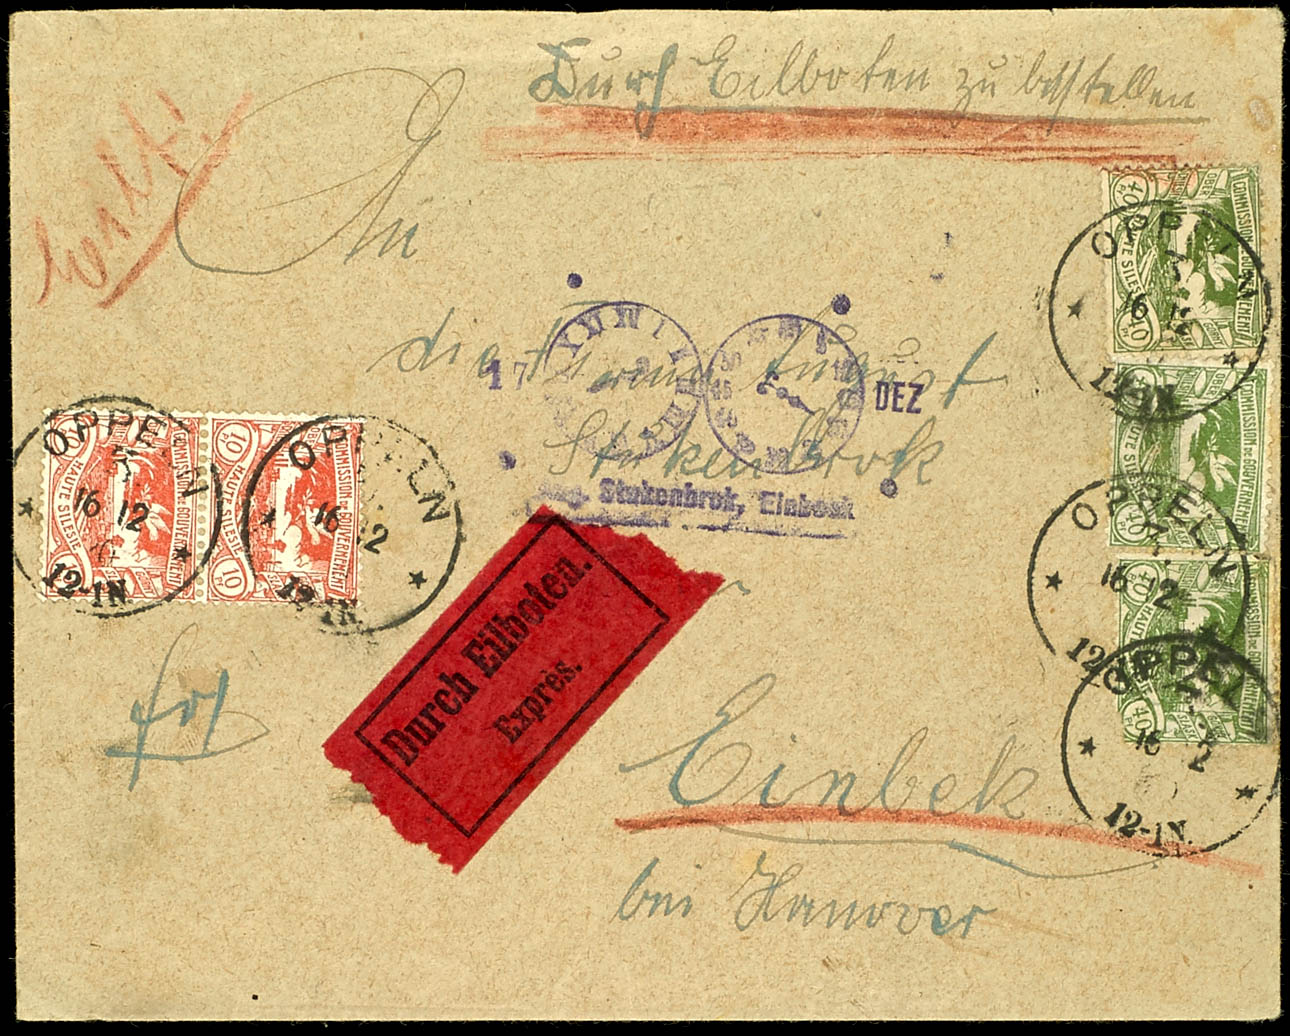 Durch Eilboten zu bestellen
Eilt!
An
die Firma August
Stukenbrok
17 DEZ
Aug. Stukenbrok, Einbeck
Durch Eilboten.
Exprès.
Einbek
bei Hanover
COMMISSION DE GOUVERNEMENT
HAUTE SILESIE
10 Pf
OPPELN
16 12
12-1N.
COMMISSION DE GOUVERNEMENT
HAUTE SILESIE
10 Pf
OPPELN
16 12
12-1N.
COMMISSION DE GOUVERNEMENT
HAUTE SILESIE
40 Pf
OPPELN
16
12-1N.
COMMISSION DE GOUVERNEMENT
HAUTE SILESIE
40
OPPELN
16 12
12
COMMISSION DE GOUVERNEMENT
HAUTE SILESIE
40 Pf
OPPELN
16 12
12-1N.